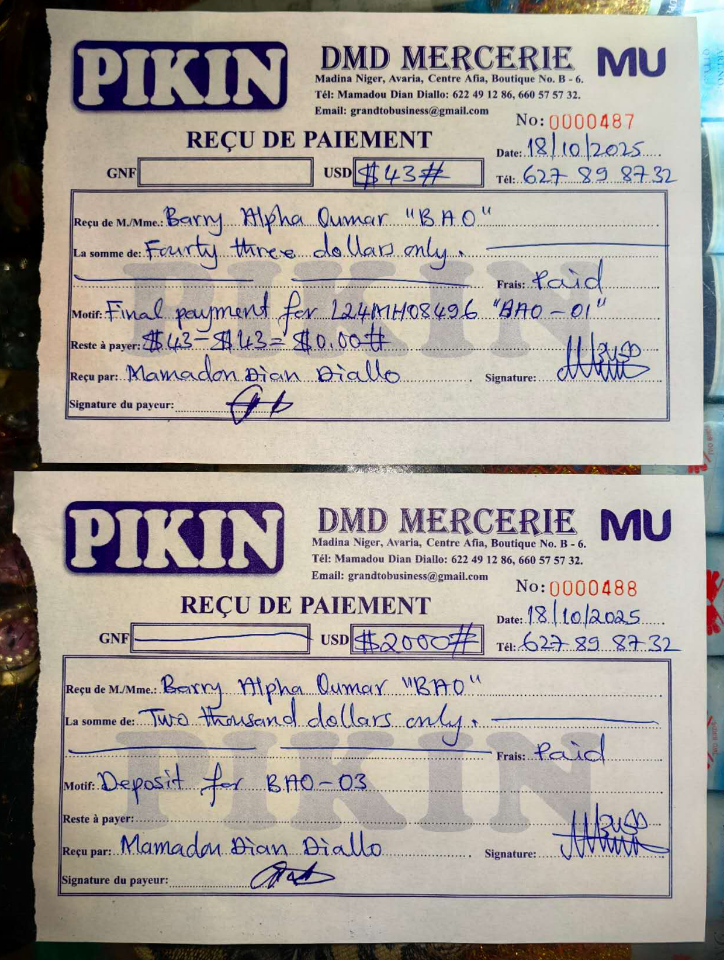 PIKIN
DMD MERCERIE
MU
Madina Niger, Avaria, Centre Afia, Boutique No. B - 6.
Tél: Mamadou Dian Diallo: 622 49 12 86, 660 57 57 32.
Email: grandtobusiness@gmail.com
No: 0000487
REÇU DE PAIEMENT
Date: 18/10/2025
GNF
USD $43#
Tél: 627 89 87 32
Reçu de M./Mme.: Barry Alpha Oumar "BAO"
La somme de: Fourty three dollars only.
Frais: Paid
Motif: Final payment for L24MH08496 "BAO-01"
Reste à payer: $43-$43=$0.00#
Reçu par: Mamadou Dian Diallo Signature:
Signature du payeur:
PIKIN
PIKIN
DMD MERCERIE
MU
Madina Niger, Avaria, Centre Afia, Boutique No. B - 6.
Tél: Mamadou Dian Diallo: 622 49 12 86, 660 57 57 32.
Email: grandtobusiness@gmail.com
No: 0000488
REÇU DE PAIEMENT
Date: 18/10/2025
GNF
USD $2000#
Tél: 627 89 87 32
Reçu de M./Mme.: Barry Alpha Oumar "BAO"
La somme de: Two thousand dollars only.
Frais: Paid
Motif: Deposit for BAO-03
Reste à payer:
Reçu par: Mamadou Dian Diallo Signature:
Signature du payeur:
PIKIN